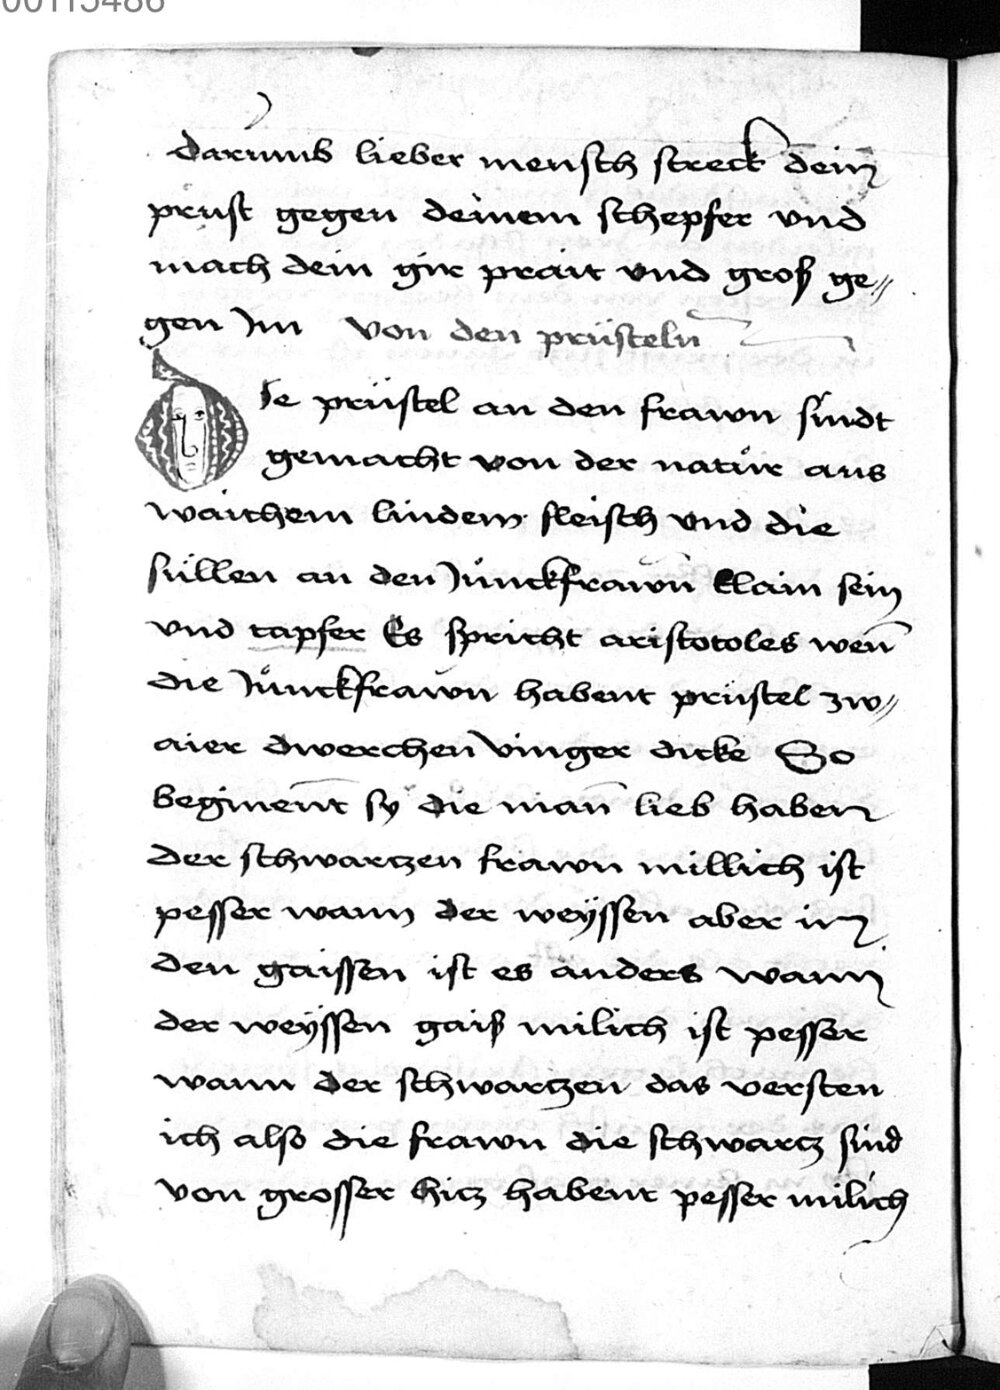 00115486
darumb lieber mensch streck dein
prüst gegen deinem schepfer vnd
mach dein gir prait vnd groß ge//
gen Im von den prüsteln
Die prüstel an den frawn sindt
gemacht von der natur aus
waichem lindem fleisch vnd die
süllen an den Junckfrawn klain sein
vnd tapfer Es spricht aristotoles wen̄
die Junckfrawn habent prüstel zw//
aier dwerchen vinger dicke So
beginent̄ sy die man̄ lieb haben
der schwartzen frawn millich ist
pesser wann der weyssen aber in
den gaissen ist es anders wann
der weyssen gaiß milich ist pesser
wann der schwartzen das versten
ich also die frawn die schwartz sind
von grosser hitz habent pesser milich